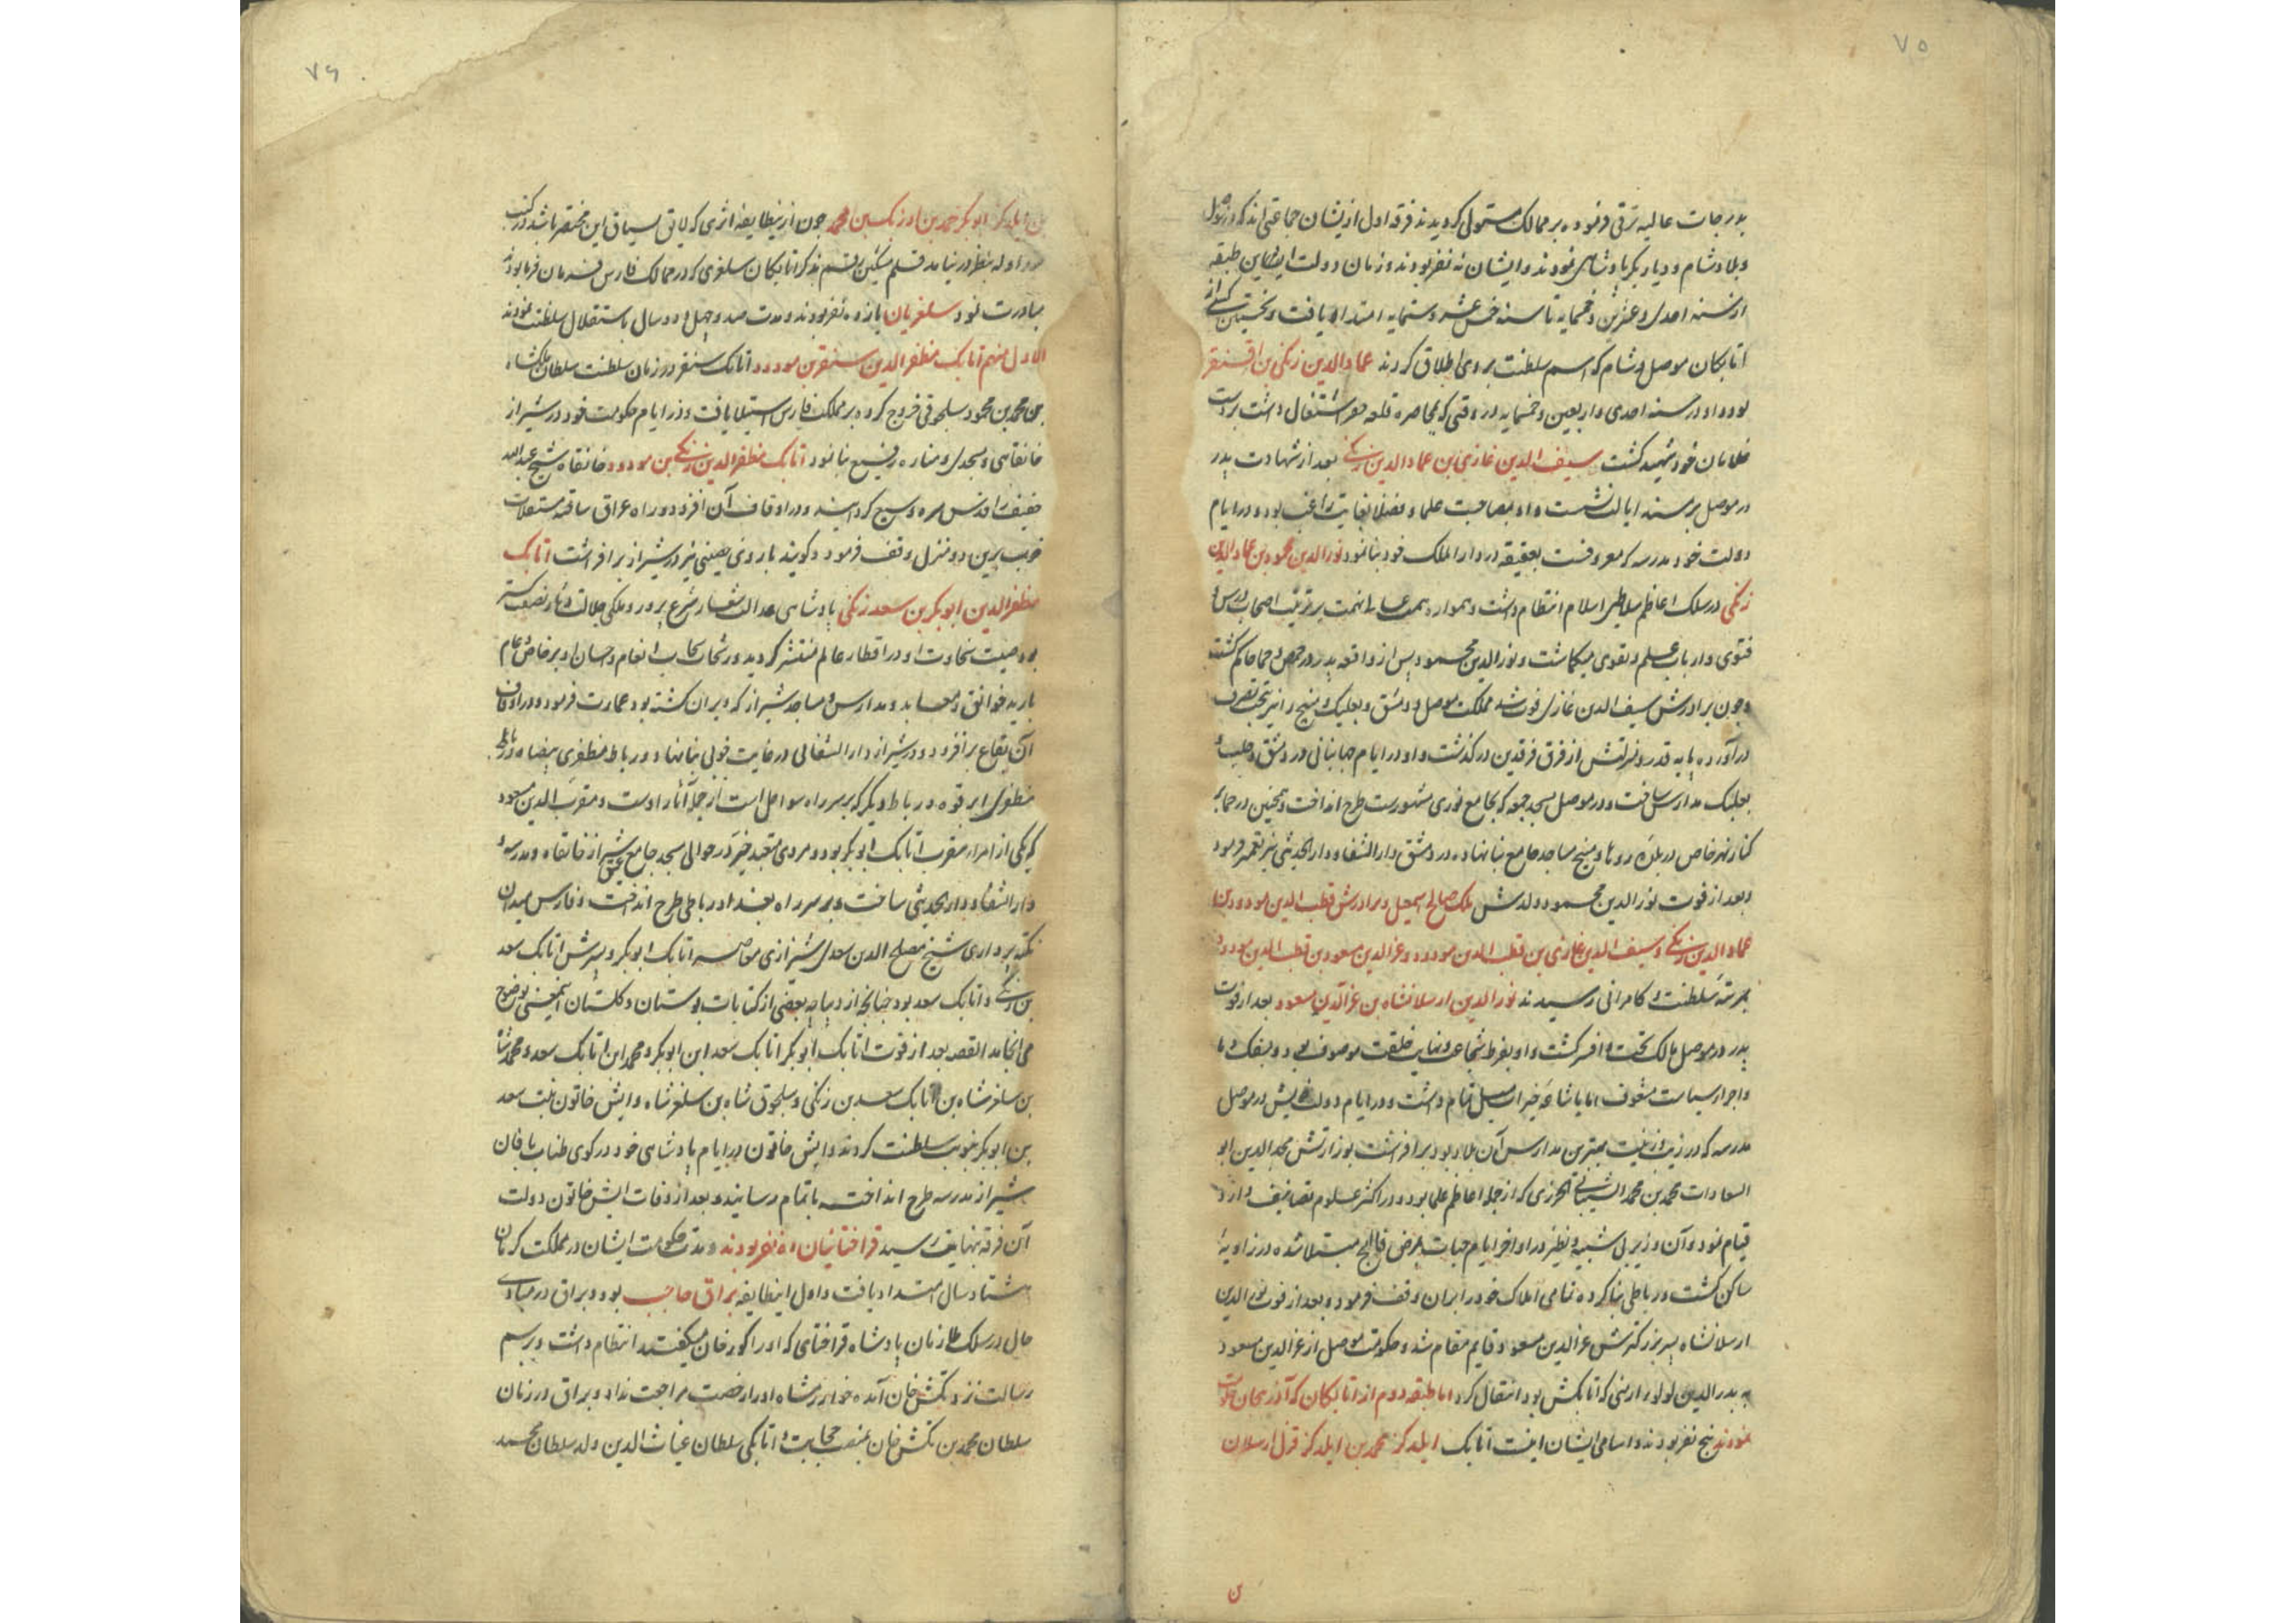 ۷۵
بدرجات عالیه ترقی فرموده بر ممالک مستولی گردیدند فرقه اول ازیشان جماعتی‌اند که در موصل
و بلاد شام و دیار بکر پادشاهی نمودند و ایشان نه نفر بودند و زمان دولت این طبقه
از سنه احدی و عشرین و خمسمایه تا سنه خمس عشر و ستمایه امتداد یافت و نخستین کسی از
اتابکان موصل و شام که اسم سلطنت بروی اطلاق کردند عماد الدین زنکی بن اقسنقر
بود و او در سنه احدی و اربعین و خمسمایه در وقتی که بمحاصره قلعه جعبر اشتغال داشت بر دست
غلامان خود شهید کشت سیف الدین غازی بن عماد الدین زنکی بعد از شهادت پدر
در موصل بر مسند ایالت نشست و او بمصاحبت علما و فضلا بغایت راغب بود و در ایام
دولت خود مدرسه که معروفست بعتیقه در دار الملک خود بنا نمود نور الدین محمود بن عماد الدین
زنکی در سلک اعاظم سلاطین اسلام انتظام داشت و همواره همت عالی نهمت بر تربیت اصحاب درس و
فتوی و ارباب علم و تقوی میکماشت و نور الدین محمود پس از واقعه پدر در حمص و حما حاکم کشت
و چون برادرش سیف الدین غازی فوت شد مملکت موصل و دمشق و بعلبک و منبج را نیز بتحت تصرف
در آورده پایه قدر و منزلتش از فرق فرقدین درگذشت و او در ایام جهانبانی در دمشق و حلب و
بعلبک مدارس ساخت و در موصل مسجد جمعه که بجامع نوری مشهورست طرح انداخت و همچنین در حما بر
کنار نهر خاص در بلده روها و منبج مساجد جامع بنا نهاده در دمشق دار الشفا و دار الحدیثی نیز تعمیر فرمود
و بعد از فوت نور الدین محمود ولدش ملک صالح اسمعیل و برادرش قطب الدین مودود بن
عماد الدین زنکی و سیف الدین غازی بن قطب الدین مودود و عز الدین مسعود بن قطب الدین مودود
بمرتبه سلطنت و کامرانی رسیدند نور الدین ارسلانشاه بن عز الدین مسعود بعد از فوت
پدر در موصل مالک تخت و افسر کشت و او بفرط شجاعت و نهایت خلقت موصوف بود و بسفک دما
و اجرا سیاست مشعوف اما باشاعه خیرات میل تمام داشت و در ایام دولت خویش در موصل
مدرسه که در زیب و زینت بهترین مدارس آن بلاد بود بر افراشت بوزارتش مجد الدین ابو
السعادات محمد بن محمد الشیبانی الجزری که از جمله اعاظم علما بود و در اکثر علوم تصانیف دارد
قیام نمود و آن وزیر بی شبیه و نظیر در اواخر ایام حیات بمرض فالج مبتلا شده در زاویه
ساکن کشت و رباطی بنا کرده تمامی املاک خود را بران وقف فرمود و بعد از فوت نور الدین
ارسلانشاه پسر بزرکترش عز الدین مسعود قایم مقام شد و حکومت موصل از عز الدین مسعود
به بدر الدین لولو ارمنی که اتابکش بود انتقال کرد اما طبقه دوم از اتابکان که آذربیجان حکومت
نمودند پنج نفر بودند و اسامی ایشان اینست اتابک ایلدکز محمد بن ایلدکز قزل ارسلان
بن
۷۶
بن ایلدکز ابو بکر بن محمد اوزبک بن محمد چون ازین طایفه اثری که لایق سیاق این مختصر باشد در کتب
متداوله بنظر در نیامد قلم مشکین رقم بذکر اتابکان سلغری که در ممالک فارس فرمان فرما بودند
مبادرت نمود سلغریان یازده نفر بودند و مدت صد و چهل و دو سال باستقلال سلطنت نمودند
الاول منهم اتابک مظفر الدین سنقر بن مودود اتابک سنقر در زمان سلطنت سلطان ملکشاه
بن محمد بن محمود سلجوقی خروج کرده بر مملکت فارس استیلا یافت و در ایام حکومت خود در شیراز
خانقاهی و مسجدی و مناره رفیع بنا نمود اتابک مظفر الدین زنکی بن مودود خانقاه شیخ عبد الله
خفیف را قدس سره وسیع کردانیده و در اوقاف آن افزود و در راه عراق ساقه مستغلات
خوب برین دو منزل وقف فرمود و کویند باروی نیز در شیراز برافراشت اتابک
مظفر الدین ابو بکر بن سعد زنکی پادشاهی عدالت شعار شرع پرور و ملکی جلالت دثار نصفت کستر
بود صیت سخاوت او در اقطار عالم منتشر کردید و رشحات سحاب انعام و احسان او بر خاص و عام
بارید خوانق و معابد و مدارس و مساجد شیراز که ویران کشته بود عمارت فرمود و در اوقاف
آن بقاع برافزود و در شیراز دار الشفائی در غایت خوبی بنا نهاد و رباط مظفری بیضا و رباط
مظفری ابرقوه و رباط دیگر که بر سر راه سواحل است از جمله آثار اوست و مقرب الدین مسعود
که یکی از امراء مقرب اتابک ابو بکر بود و مردی متعبد خیر در حوالی مسجد جامع عتیق شیراز خانقاه و مدرسه و
دار الشفا و دار الحدیثی ساخت و بر سر راه بغداد رباطی طرح انداخت و فارس میدان
نکته پردازی شیخ مصلح الدین سعدی شیرازی معاصر اتابک ابو بکر و پسرش اتابک سعد
بن زنکی و اتابک سعد بود چنانچه از دیباجه بعضی از کتابات بوستان و کلستان این معنی بوضوح
می انجامد القصه بعد از فوت اتابک ابو بکر اتابک سعد ابن ابو بکر و محمد ابن اتابک سعد و محمد شاه
بن سلغر شاه بن اتابک سعد بن زنکی و سلجوق شاه بن سلغر شاه و ابش خاتون بنت سعد
بن ابو بکر بنوبت سلطنت کردند و ابش خاتون در ایام پادشاهی خود در کوی طناب بافان
شیراز مدرسه طرح انداخته باتمام رسانید و بعد از وفات ابش خاتون دولت
آن فرقه بنهایت رسید قراختائیان ده نفر بودند و مدت حکومت ایشان در مملکت کرمان
هشتاد سال امتداد یافت و اول این طایفه براق حاجب بود و براق در مبادی
حال در سلک ملازمان پادشاه قراختای که او را کورخان میکفتند انتظام داشت و برسم
رسالت نزد تکش خان آمده خوارزمشاه او را رخصت مراجعت نداد و براق در زمان
سلطان محمد بن تکش خان بمنصب حجابت و اتابکی سلطان غیاث الدین ولد سلطان محمد